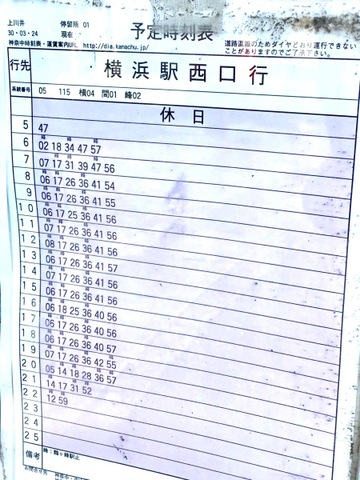 上川井 停留所 01
30・03・24 現在
予定時刻表
神奈中時刻表・運賃案内URL http://dia.kanachu.jp/
道路混雑のためダイヤどおり運行できない
ことがありますのでご了承下さい。
行先 横浜駅西口行
系統番号 05 115 横04 間01 峰02
休日
5 47
6 02 18 34 47 57
7 07 17 31 39 47 56
8 06 17 26 36 41 54
9 06 17 26 36 41 55
10 06 17 25 36 41 56
11 07 17 26 36 41 56
12 08 17 26 36 41 56
13 06 17 26 36 41 57
14 07 17 26 36 41 56
15 06 17 26 36 41 56
16 06 18 25 36 40 56
17 06 17 26 36 40 56
18 06 17 26 36 40 57
19 07 17 26 36 42 55
20 05 14 18 28 36 57
21 14 17 31 52
22 12 59
23
24
25
備考